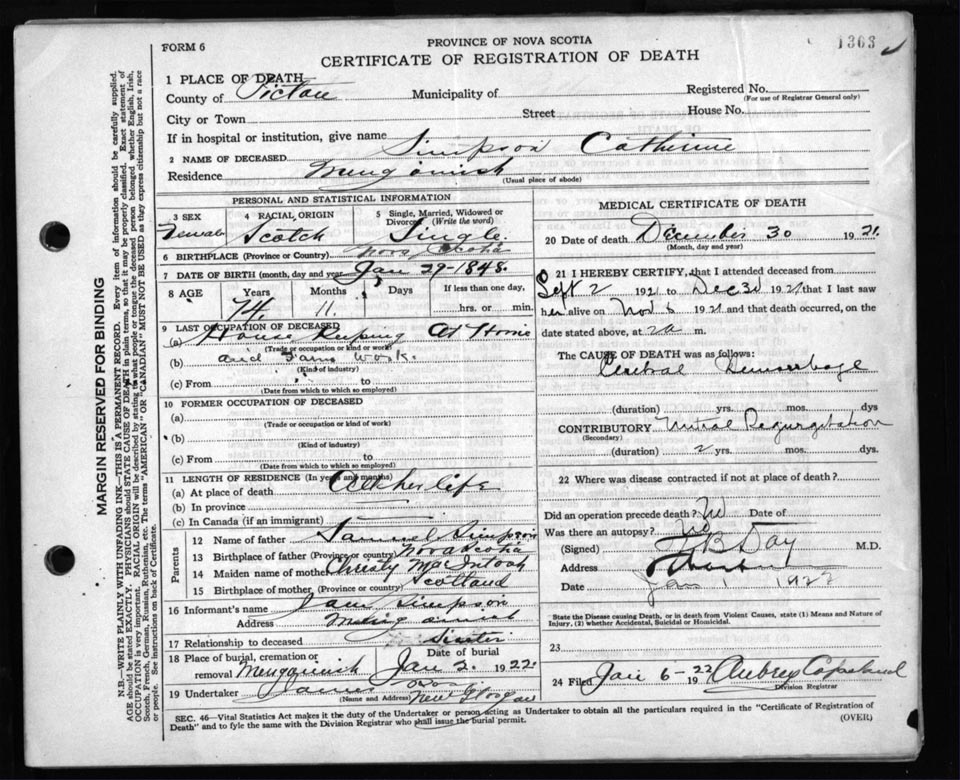 FORM 6
PROVINCE OF NOVA SCOTIA
1363
CERTIFICATE OF REGISTRATION OF DEATH
1 PLACE OF DEATH
County of Pictou Municipality of Registered No.
(For use of Registrar General only)
City or Town Street House No.
If in hospital or institution, give name
2 NAME OF DECEASED Simpson Catherine
Residence Merigomish
(Usual place of abode)
PERSONAL AND STATISTICAL INFORMATION
3 SEX 4 RACIAL ORIGIN 5 Single, Married, Widowed or Divorced (Write the word)
Female Scotch Single
6 BIRTHPLACE (Province or Country) Nova Scotia
7 DATE OF BIRTH (month, day and year) Jan 29-1848.
8 AGE Years Months Days If less than one day,
74 11. hrs. or min.
9 LAST OCCUPATION OF DECEASED
(a) House Keeping At Home
(Trade or occupation or kind of work)
(b) and Farm work.
(Kind of industry)
(c) From to
(Date from which to which so employed)
10 FORMER OCCUPATION OF DECEASED
(a)
(Trade or occupation or kind of work)
(b)
(Kind of industry)
(c) From to
(Date from which to which so employed)
11 LENGTH OF RESIDENCE (In years and months)
(a) At place of death All her life
(b) In province
(c) In Canada (if an immigrant)
Parents
12 Name of father Samuel Simpson
13 Birthplace of father (Province or country) Nova Scotia
14 Maiden name of mother Christy MacIntosh
15 Birthplace of mother (Province or country) Scotland
16 Informant's name Jane Simpson
Address Merigomish
17 Relationship to deceased Sister
18 Place of burial, cremation or removal Merigomish
Date of burial Jan 2. 1922.
19 Undertaker James
(Name and Address) New Glasgow
MEDICAL CERTIFICATE OF DEATH
20 Date of death December 30 1921.
(Month, day and year)
21 I HEREBY CERTIFY, that I attended deceased from
Sept 2 1921 to Dec 30 1921 that I last saw
her alive on Nov 5 1921 and that death occurred, on the
date stated above, at 2 a m.
The CAUSE OF DEATH was as follows:
Cerebral Hemorrhage
(duration) yrs. mos. dys
CONTRIBUTORY Mitral Regurgitation
(Secondary)
(duration) 2 yrs. mos. dys.
22 Where was disease contracted if not at place of death?
Did an operation precede death? No Date of
Was there an autopsy? No
(Signed) F B Day M.D.
Address Thorburn
Date Jan 1 1922
State the Disease causing Death, or in death from Violent Causes, state (1) Means and Nature of Injury, (2) whether Accidental, Suicidal or Homicidal.
23
24 Filed Jan 6-22 19 Aubrey Copeland
Division Registrar
SEC. 46—Vital Statistics Act makes it the duty of the Undertaker or person acting as Undertaker to obtain all the particulars required in the "Certificate of Registration of
Death" and to fyle the same with the Division Registrar who shall issue the burial permit.
(OVER)
MARGIN RESERVED FOR BINDING
N.B.—WRITE PLAINLY WITH UNFADING INK—THIS IS A PERMANENT RECORD. Every item of information should be carefully supplied.
AGE should be stated EXACTLY. PHYSICIANS should STATE CAUSE OF DEATH in plain terms, so that it may be properly classified. Exact statement of
OCCUPATION is very important. RACIAL ORIGIN will be described by stating to what people or tongue the deceased person belonged whether English, Irish,
Scotch, French, German, Russian, Ruthenian, etc. The terms "AMERICAN" OR "CANADIAN" MUST NOT BE USED as they express citizenship but not a race
or people. See instructions on back of Certificate.